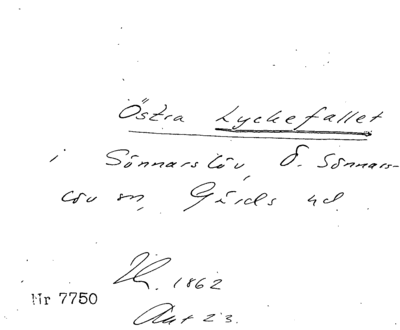 Östra Lyckefallet
i Sönnarslöv, Ö. Sönnars-
löv sn, Gärds hd.
1862
Nr 7750
Akt 23.